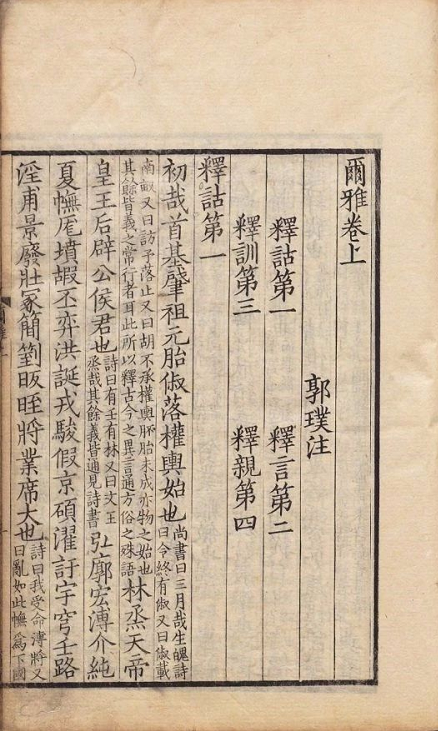 爾雅卷上
郭璞注
釋詁第一 釋言第二
釋訓第三 釋親第四
釋詁第一
初哉首基肈祖元胎俶落權輿始也尚書曰三月哉生魄詩曰令終有俶又曰俶載
南畝又曰訪予落止又曰胡不承權輿胚胎未成亦物之始也其餘皆義之常行者耳此所以釋古今之異言通方俗之殊語林烝天帝
皇王后辟公侯君也詩曰有壬有林又曰文王烝哉其餘義皆通見詩書弘廓宏溥介純
夏幠厖墳嘏丕弈洪誕戎駿假京碩濯訏宇穹壬路
淫甫景廢壯冢簡箌昄晊將業席大也詩曰我受命溥將又曰亂如此幠爲下國